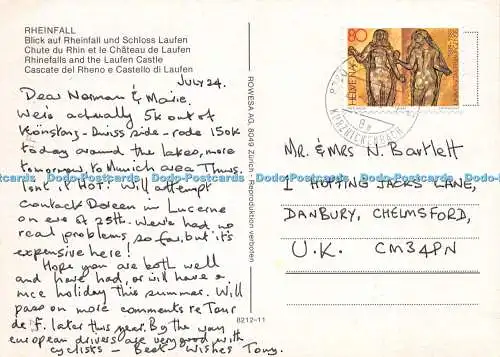 RHEINFALL
Blick auf Rheinfall und Schloss Laufen
Chute du Rhin et le Château de Laufen
Rhinefalls and the Laufen Castle
Cascate del Rheno e Castello di Laufen
JULY 24.
Dear Norman & Marie.
We're actually 5k out of
Konstanz - Swiss side - rode 150k
today around the lakes, more
tomorrow, to Munich area Thurs.
Isn't it HOT! Will attempt
contact Doreen in Lucerne
on eve of 25th. We've had no
real problems so far, but it's
expensive here!
Hope you are both well
and have had, or will have a
nice holiday this summer. Will
pass on more comments re Tour
de F. later this year. By the way
european drivers are very good with
cyclists - Best Wishes Tony.
ROWESA AG, 8049 Zürich - Reproduktion verboten
8212-11
80
HELVETIA
MR. & MRS N. Bartlett
1 HUTTING JACKS LANE,
DANBURY, CHELMSFORD,
U.K. CM34PN
Dodo-Postcards Dodo-Postcards Dodo-Postcards Dodo-Postcards Dodo-Postcards Dodo-Postcards